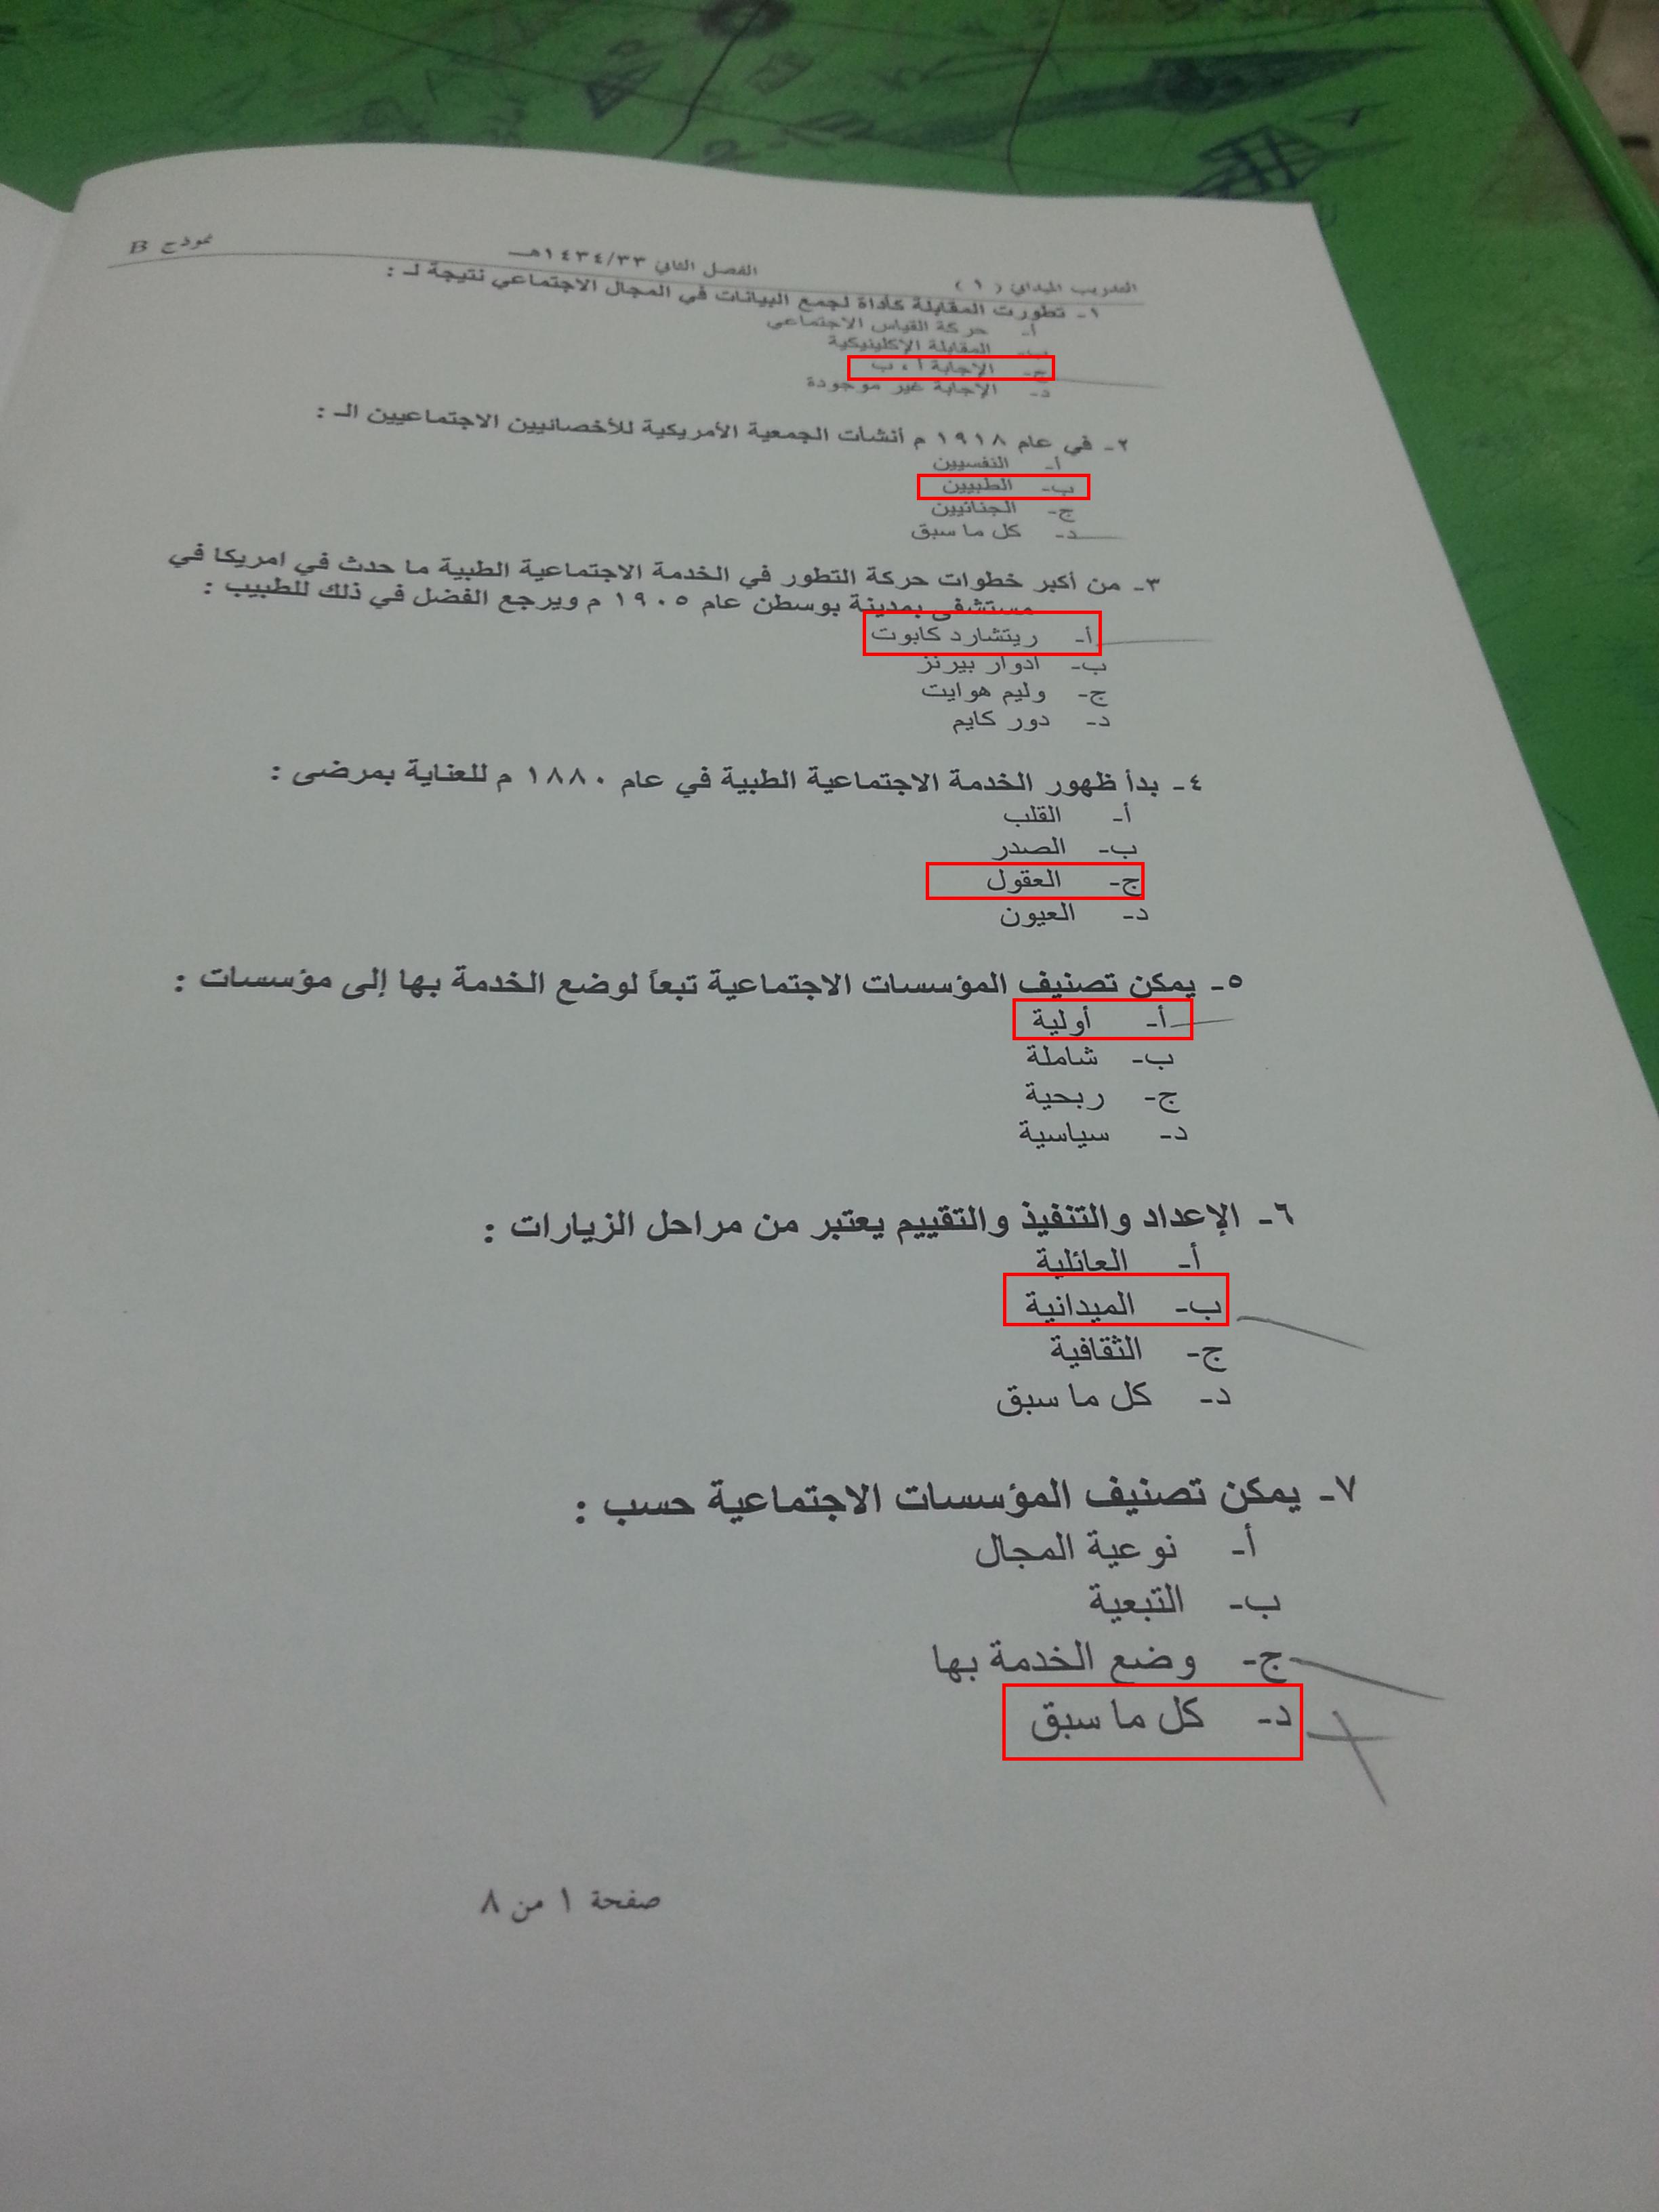 التدريب الميداني ( ١ ) الفصل الثاني ١٤٣٤/٣٣هـ نموذج B
١- تطورت المقابلة كأداة لجمع البيانات في المجال الاجتماعي نتيجة لـ :
أ- حركة القياس الاجتماعي
ب- المقابلة الإكلينيكية
ج- الإجابة أ ، ب
د- الإجابة غير موجودة
٢- في عام ١٩١٨ م أنشأت الجمعية الأمريكية للأخصائيين الاجتماعيين الـ :
أ- النفسيين
ب- الطبيين
ج- الجنائيين
د- كل ما سبق
٣- من أكبر خطوات حركة التطور في الخدمة الاجتماعية الطبية ما حدث في امريكا في
مستشفى بمدينة بوسطن عام ١٩٠٥ م ويرجع الفضل في ذلك للطبيب :
أ- ريتشارد كابوت
ب- ادوار بيرنز
ج- وليم هوايت
د- دور كايم
٤- بدأ ظهور الخدمة الاجتماعية الطبية في عام ١٨٨٠ م للعناية بمرضى :
أ- القلب
ب- الصدر
ج- العقول
د- العيون
٥- يمكن تصنيف المؤسسات الاجتماعية تبعاً لوضع الخدمة بها إلى مؤسسات :
أ- أولية
ب- شاملة
ج- ربحية
د- سياسية
٦- الإعداد والتنفيذ والتقييم يعتبر من مراحل الزيارات :
أ- العائلية
ب- الميدانية
ج- الثقافية
د- كل ما سبق
٧- يمكن تصنيف المؤسسات الاجتماعية حسب :
أ- نوعية المجال
ب- التبعية
ج- وضع الخدمة بها
د- كل ما سبق
صفحة ١ من ٨